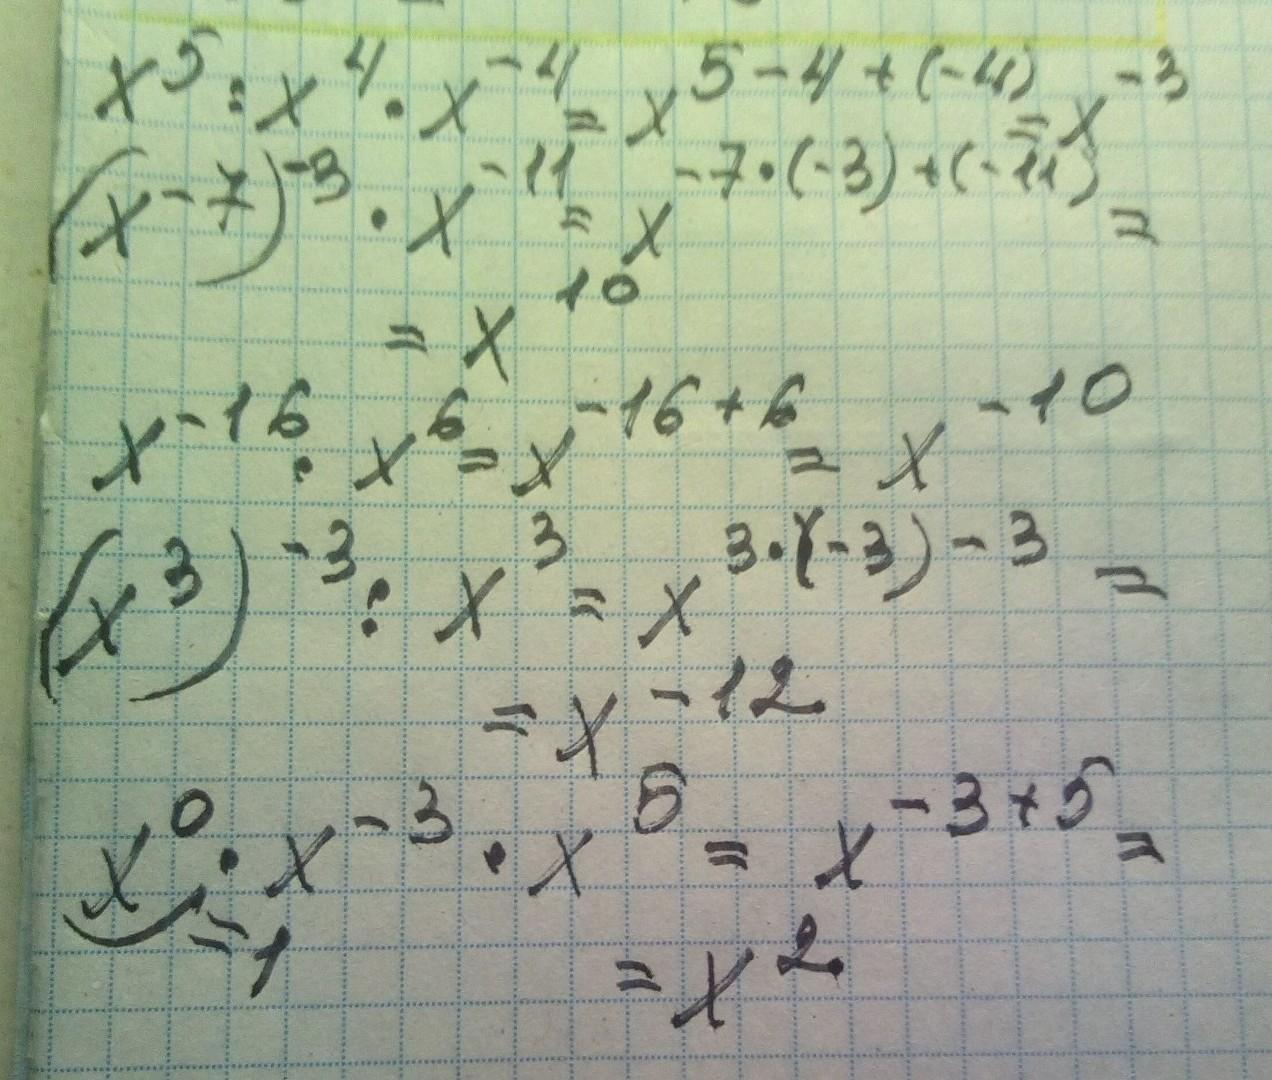 x⁵ : x⁴ · x⁻⁴ = x⁵⁻⁴⁺⁽⁻⁴⁾ = x⁻³
(x⁻⁷)⁻³ · x⁻¹¹ = x⁻⁷·⁽⁻³⁾⁺⁽⁻¹¹⁾ =
= x¹⁰
x⁻¹⁶ · x⁶ = x⁻¹⁶⁺⁶ = x⁻¹⁰
(x³)⁻³ : x³ = x³·⁽⁻³⁾⁻³ =
= x⁻¹²
x⁰ · x⁻³ · x⁵ = x⁻³⁺⁵ =
=1 = x²